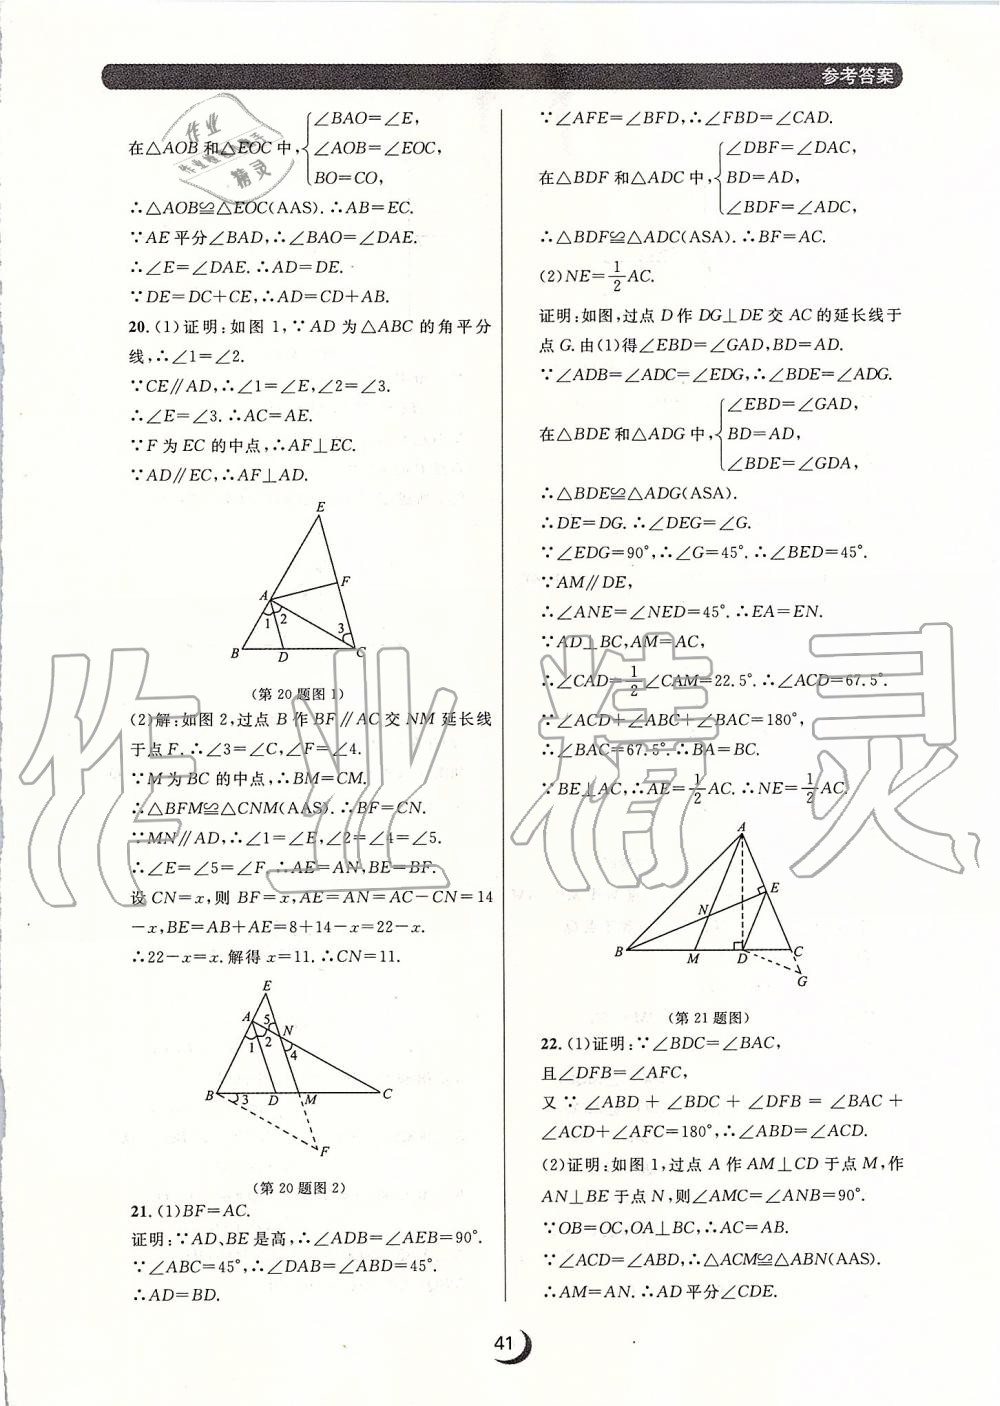 参考答案
作业
精灵
∠BAO=∠E,
在△AOB 和△EOC 中,
∠AOB=∠EOC,
BO=CO,
∴△AOB≌△EOC(AAS).∴AB=EC.
∵AE 平分∠BAD,∴∠BAO=∠DAE.
∴∠E=∠DAE.∴AD=DE.
∵DE=DC+CE,∴AD=CD+AB.
20.(1)证明:如图 1,∵AD 为△ABC 的角平分
线,∴∠1=∠2.
∵CE∥AD,∴∠1=∠E,∠2=∠3.
∴∠E=∠3.∴AC=AE.
∵F 为 EC 的中点,∴AF⊥EC.
∵AD∥EC,∴AF⊥AD.
E
F
A
1
2
3
B
D
C
(第 20 题图 1)
(2)解:如图 2,过点 B 作 BF∥AC 交 NM 延长线
于点 F.∴∠3=∠C,∠F=∠4.
∵M 为 BC 的中点,∴BM=CM.
∴△BFM≌△CNM(AAS).∴BF=CN.
∵MN∥AD,∴∠1=∠E,∠2=∠4=∠5.
∴∠E=∠5=∠F.∴AE=AN,BE=BF.
设 CN=x,则 BF=x,AE=AN=AC-CN=14
-x,BE=AB+AE=8+14-x=22-x.
∴22-x=x.解得 x=11.∴CN=11.
E
A
5
N
1
2
4
B
3
D
M
C
F
(第 20 题图 2)
21.(1)BF=AC.
证明:∵AD、BE 是高,∴∠ADB=∠AEB=90°.
∵∠ABC=45°,∴∠DAB=∠ABD=45°.
∴AD=BD.
∵∠AFE=∠BFD,∴∠FBD=∠CAD.
∠DBF=∠DAC,
在△BDF 和△ADC 中,
BD=AD,
∠BDF=∠ADC,
∴△BDF≌△ADC(ASA).∴BF=AC.
(2)NE=1/2AC.
证明:如图,过点 D 作 DG⊥DE 交 AC 的延长线于
点 G.由(1)得∠EBD=∠GAD,BD=AD.
∵∠ADB=∠ADC=∠EDG,∴∠BDE=∠ADG.
∠EBD=∠GAD,
在△BDE 和△ADG 中,
BD=AD,
∠BDE=∠GDA,
∴△BDE≌△ADG(ASA).
∴DE=DG.∴∠DEG=∠G.
∵∠EDG=90°,∴∠G=45°.∴∠BED=45°.
∵AM∥DE,
∴∠ANE=∠NED=45°.∴EA=EN.
∵AD⊥BC,AM=AC,
∴∠CAD=1/2∠CAM=22.5°.∴∠ACD=67.5°.
∵∠ACD+∠ABC+∠BAC=180°,
∴∠BAC=67.5°.∴BA=BC.
∵BE⊥AC,∴AE=1/2AC.∴NE=1/2AC.
A
E
N
B
M
D
C
G
(第 21 题图)
22.(1)证明:∵∠BDC=∠BAC,
且∠DFB=∠AFC,
又∵∠ABD+∠BDC+∠DFB=∠BAC+
∠ACD+∠AFC=180°,∴∠ABD=∠ACD.
(2)证明:如图 1,过点 A 作 AM⊥CD 于点 M,作
AN⊥BE 于点 N,则∠AMC=∠ANB=90°.
∵OB=OC,OA⊥BC,∴AC=AB.
∵∠ACD=∠ABD,∴△ACM≌△ABN(AAS).
∴AM=AN.∴AD 平分∠CDE.
41
作业精灵